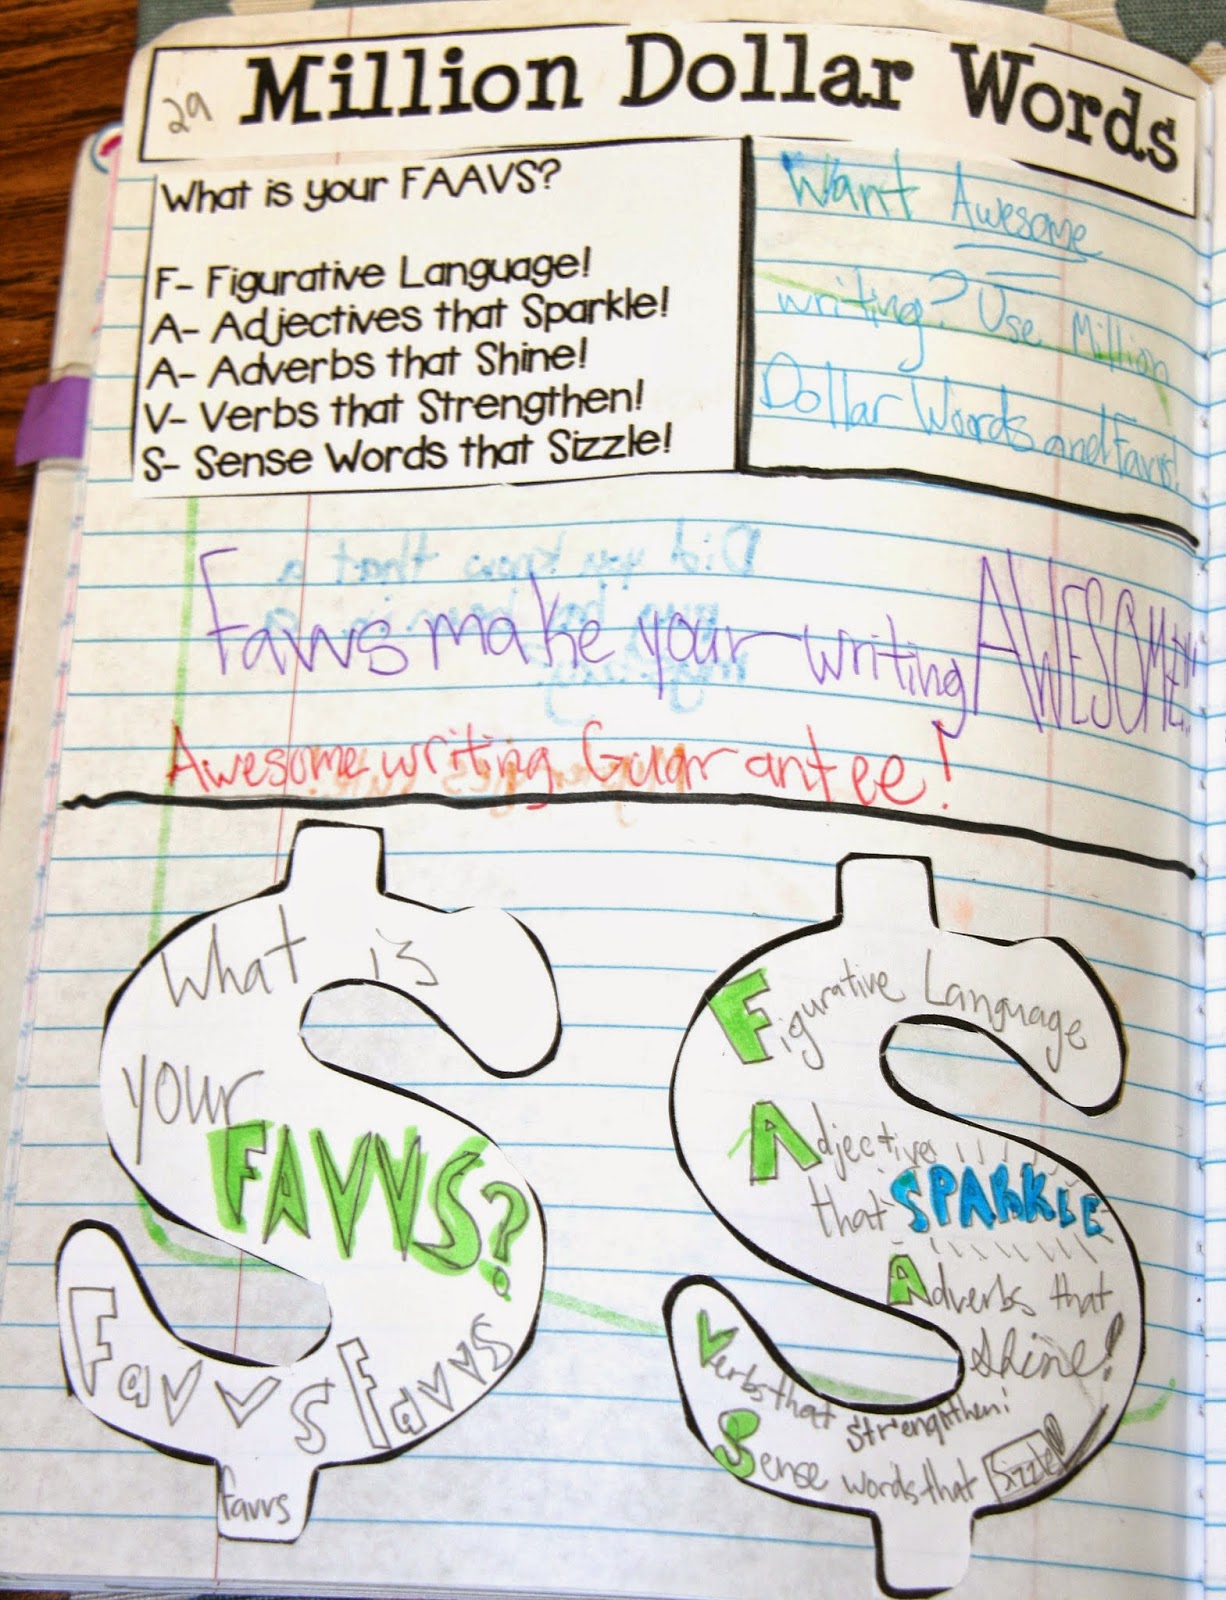 29 Million Dollar Words
What is your FAAVS?
F- Figurative Language!
A- Adjectives that Sparkle!
A- Adverbs that Shine!
V- Verbs that Strengthen!
S- Sense Words that Sizzle!
Want Awesome
writing? Use Million
Dollar Words and Favvs!
Did you know that a
Favvs make your writing AWESOME!!
Awesome writing Guarantee!
What is
your
FAVVS?
Favvs Favvs
favvs
Figurative Language
Adjectives
that SPARKLE
Adverbs that
shine!
Verbs that strengthen!
Sense words that Sizzle!